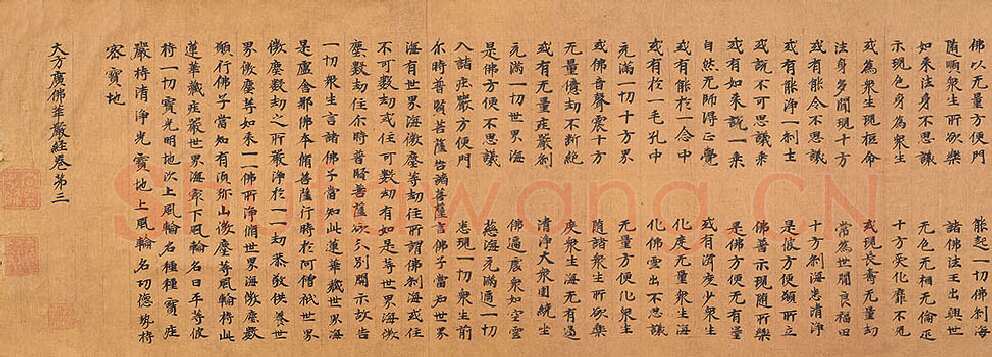 佛以无量方便門 能起一切佛刹海
隨順衆生所欲樂 諸佛法王出興世
如來法身不思議 无色无相无倫匹
示現色身為衆生 十方受化靡不見
或為衆生現短命 或現長壽无量劫
法身多門現十方 常為世間良福田
或有能令不思議 十方刹海悉清淨
或有能淨一刹土 是彼方便願所立
或說不可思議乘 佛普示現隨所樂
或有如來說一乘 是佛方便无有量
自然无師得正覺 或有濟度少衆生
或有能於一念中 化度无量衆生海
或有於一毛孔中 化佛雲出不思議
充滿一切十方界 无量方便化衆生
或佛音聲震十方 隨諸衆生所欲樂
无量億劫不斷絶 度衆生海无有邊
或有无量莊嚴刹 清淨大衆圍繞坐
充滿一切世界海 佛遍處衆如空雲
是佛方便不思議 慈海充滿遍一切
入諸莊嚴方便門 悉現一切衆生前
尒時普賢菩薩告諸菩薩言佛子當知世界
海有世界海微塵等劫住所謂佛刹海或住
不可數劫或住可數劫有如是等世界海微
塵數劫住尒時普賢菩薩欲分別開示故告
一切衆生言諸佛子當知此蓮華藏世界海
是盧舍那佛本脩菩薩行時於阿僧祇世界
微塵數劫之所嚴淨於一一劫恭敬供養世
界微塵等如來一一佛所淨脩世界海微塵數
願行佛子當知有須弥山微塵等風輪持此
蓮華藏莊嚴世界海㝡下風輪名曰平等彼
持一切寶光明地次上風輪名種種寶莊
嚴持清淨光寶地上風輪名功德勢持
密寶地
大方廣佛華嚴經卷第三